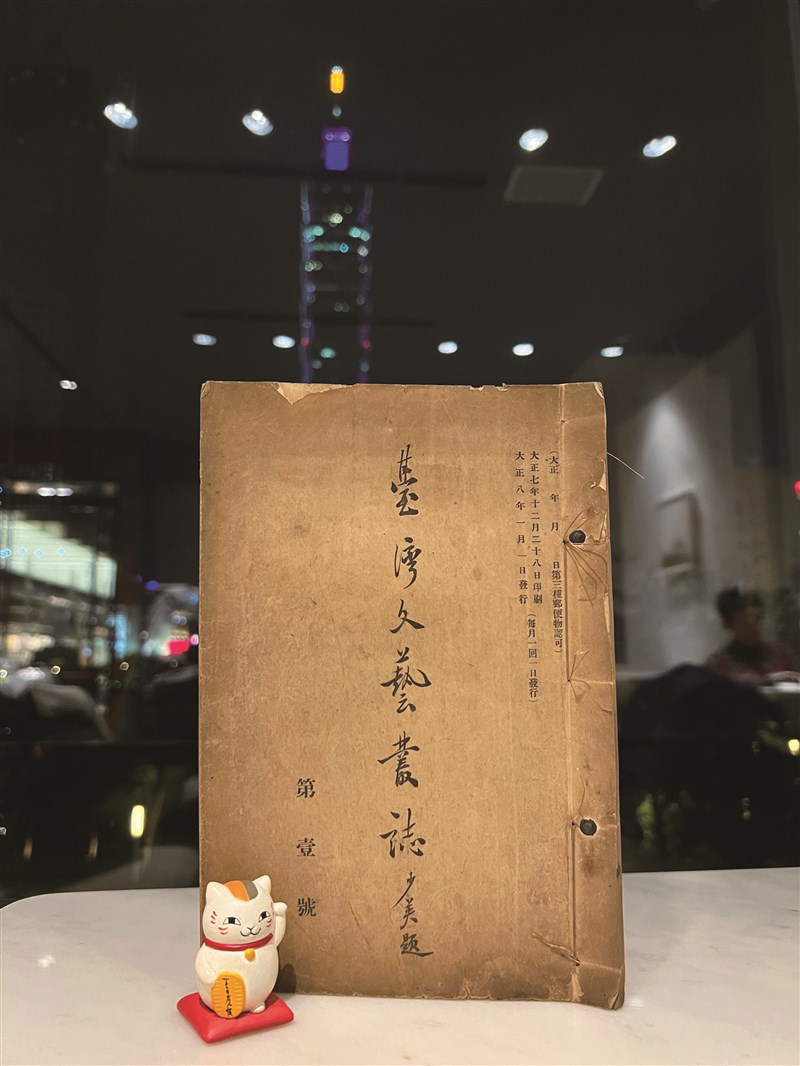 (大正　年　月　日第三種郵便物認可)
大正七年十二月二十八日印刷
(每月一回一日發行)
大正八年一月一日發行
臺灣文藝叢誌
少美題
第壹號